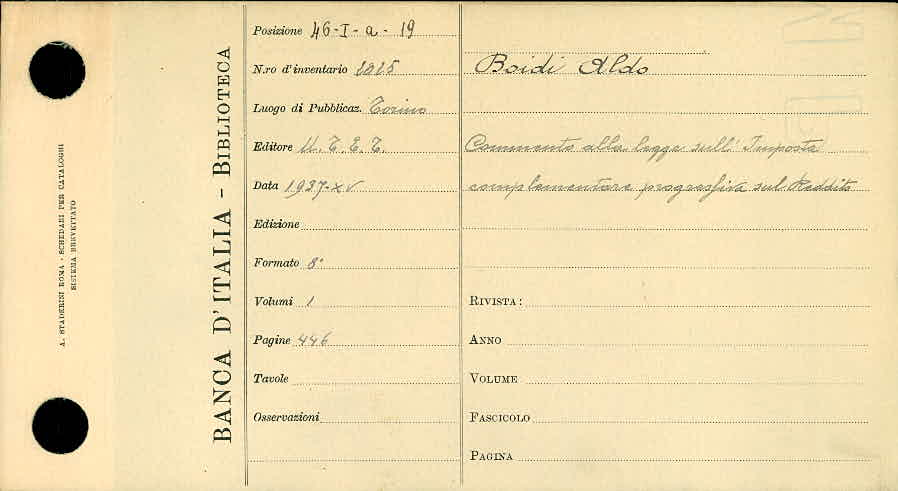 A. STADERINI ROMA - SCHEDARI PER CATALOGHI
SISTEMA BREVETTATO
BANCA D'ITALIA - BIBLIOTECA
Posizione 46-I-a-19
N.ro d'inventario 2025
Luogo di Pubblicaz. Torino
Editore U.T.E.T.
Data 1937-XV
Edizione
Formato 8°
Volumi 1
Pagine 446
Tavole
Osservazioni
Boidi Aldo
Commento alla legge sull'Imposta
complementare progressiva sul Reddito
RIVISTA:
ANNO
VOLUME
FASCICOLO
PAGINA